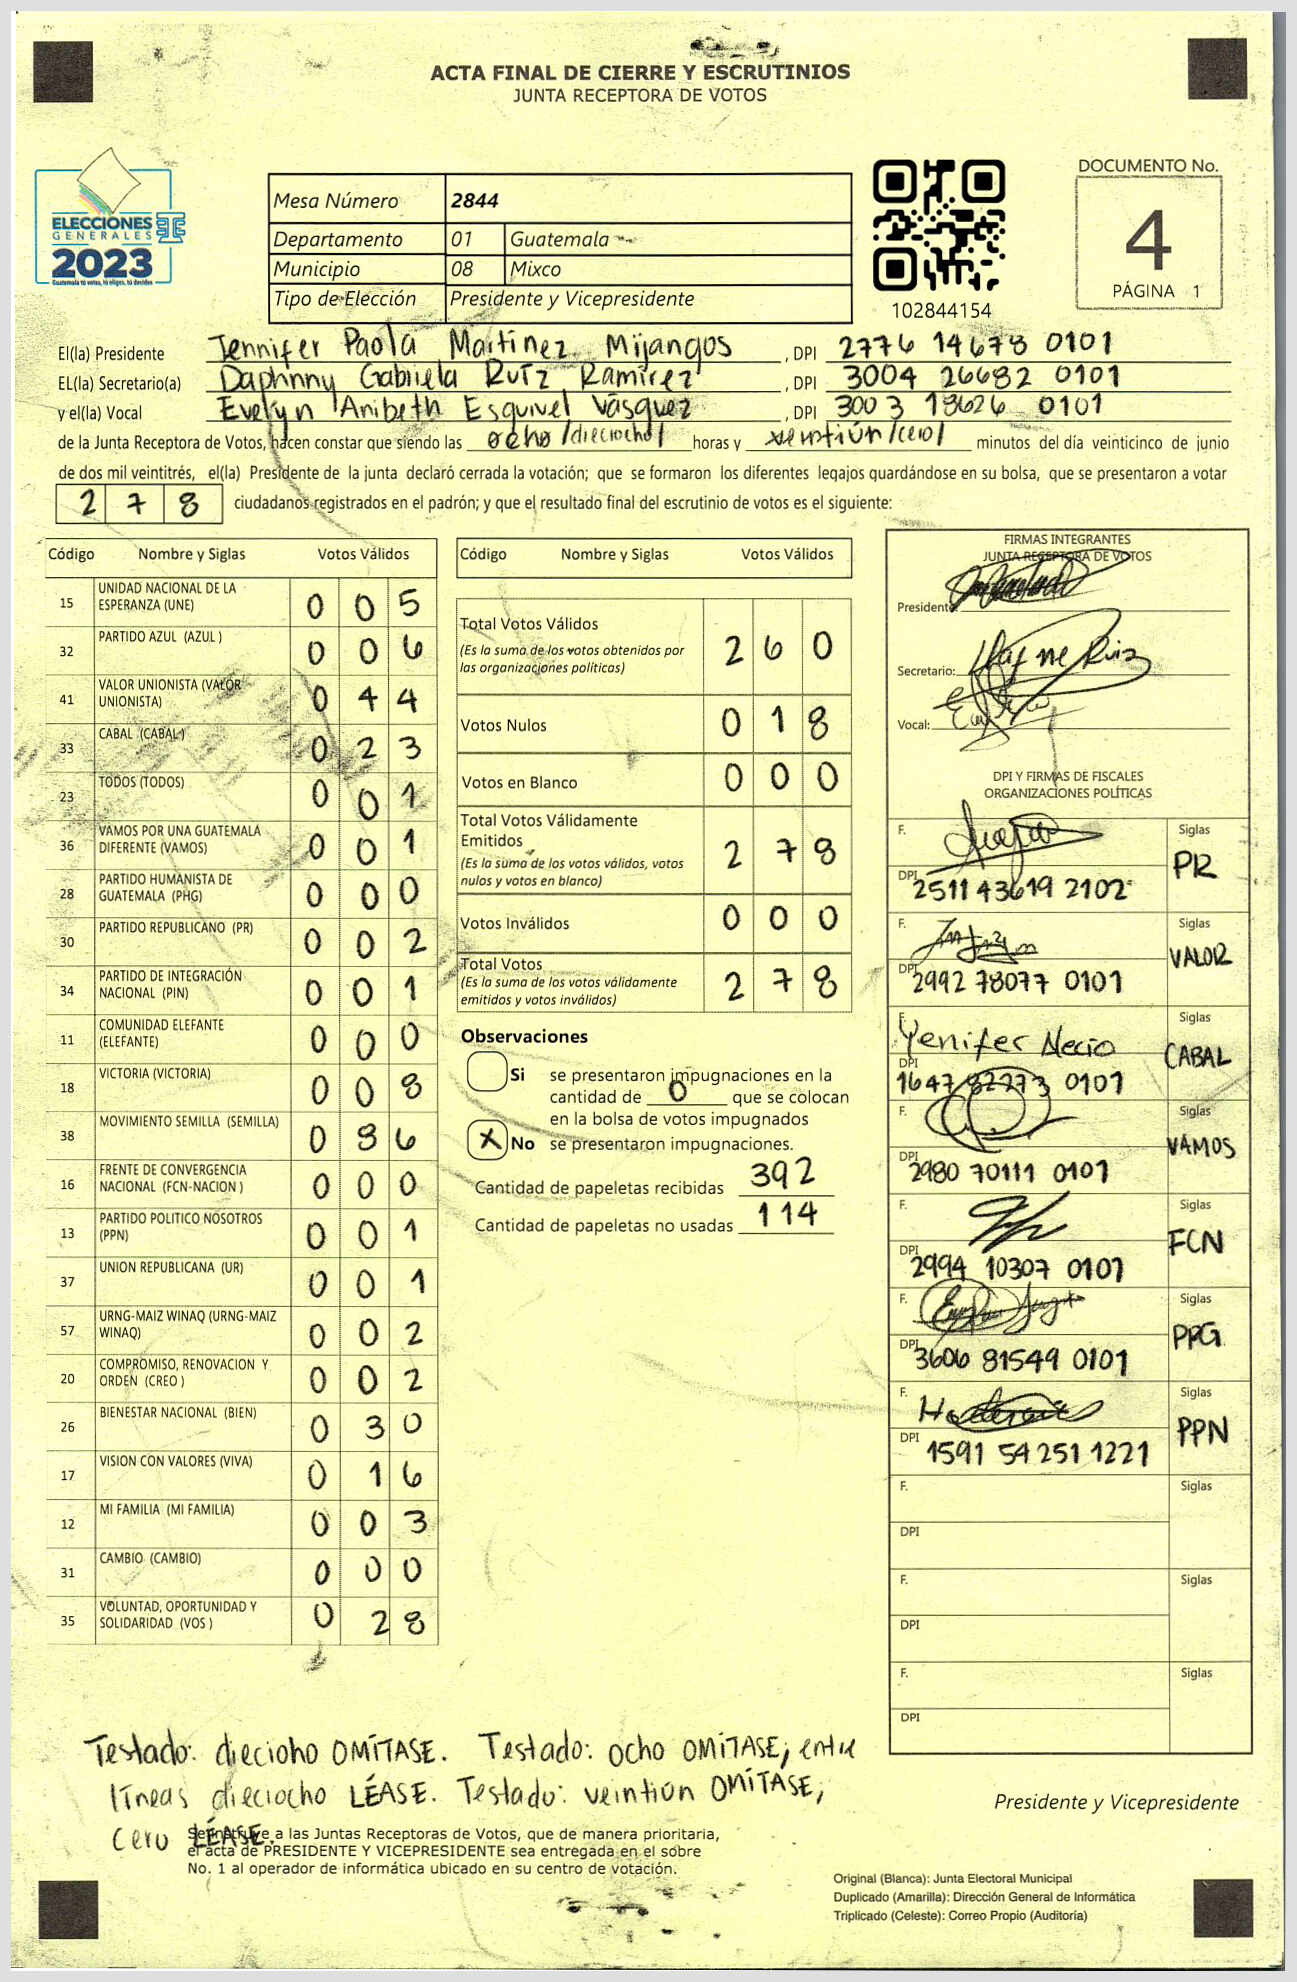 ACTA FINAL DE CIERRE Y ESCRUTINIOS
JUNTA RECEPTORA DE VOTOS
ELECCIONES
GENERALES
2023
Guatemala tú votas, tú eliges, tú decides
Mesa Número 2844
Departamento 01 Guatemala
Municipio 08 Mixco
Tipo de Elección Presidente y Vicepresidente
102844154
DOCUMENTO No.
4
PÁGINA 1
El(la) Presidente Jennifer Paola Martínez Mijangos , DPI 2776 14678 0101
EL(la) Secretario(a) Daphnny Gabriela Ruíz Ramírez , DPI 3004 26682 0101
y el(la) Vocal Evelyn Anibeth Esquivel Vásquez , DPI 3003 18626 0101
de la Junta Receptora de Votos, hacen constar que siendo las ocho /dieciocho/ horas y veintiún /cero/ minutos del día veinticinco de junio
de dos mil veintitrés, el(la) Presidente de la junta declaró cerrada la votación; que se formaron los diferentes legajos quardándose en su bolsa, que se presentaron a votar
2 7 8 ciudadanos registrados en el padrón; y que el resultado final del escrutinio de votos es el siguiente:
Código Nombre y Siglas Votos Válidos
15 UNIDAD NACIONAL DE LA ESPERANZA (UNE) 0 0 5
32 PARTIDO AZUL (AZUL ) 0 0 6
41 VALOR UNIONISTA (VALOR UNIONISTA) 0 4 4
33 CABAL (CABAL ) 0 2 3
23 TODOS (TODOS) 0 0 1
36 VAMOS POR UNA GUATEMALA DIFERENTE (VAMOS) 0 0 1
28 PARTIDO HUMANISTA DE GUATEMALA (PHG) 0 0 0
30 PARTIDO REPUBLICANO (PR) 0 0 2
34 PARTIDO DE INTEGRACIÓN NACIONAL (PIN) 0 0 1
11 COMUNIDAD ELEFANTE (ELEFANTE) 0 0 0
18 VICTORIA (VICTORIA) 0 0 8
38 MOVIMIENTO SEMILLA (SEMILLA) 0 8 6
16 FRENTE DE CONVERGENCIA NACIONAL (FCN-NACION ) 0 0 0
13 PARTIDO POLITICO NOSOTROS (PPN) 0 0 1
37 UNION REPUBLICANA (UR) 0 0 1
57 URNG-MAIZ WINAQ (URNG-MAIZ WINAQ) 0 0 2
20 COMPROMISO, RENOVACION Y ORDEN (CREO ) 0 0 2
26 BIENESTAR NACIONAL (BIEN) 0 3 0
17 VISION CON VALORES (VIVA) 0 1 6
12 MI FAMILIA (MI FAMILIA) 0 0 3
31 CAMBIO (CAMBIO) 0 0 0
35 VOLUNTAD, OPORTUNIDAD Y SOLIDARIDAD (VOS ) 0 2 8
Código Nombre y Siglas Votos Válidos
Total Votos Válidos 2 6 0
(Es la suma de los votos obtenidos por
las organizaciones políticas)
Votos Nulos 0 1 8
Votos en Blanco 0 0 0
Total Votos Válidamente
Emitidos 2 7 8
(Es la suma de los votos válidos, votos
nulos y votos en blanco)
Votos Inválidos 0 0 0
Total Votos 2 7 8
(Es la suma de los votos válidamente
emitidos y votos inválidos)
Observaciones
Si se presentaron impugnaciones en la
cantidad de 0 que se colocan
en la bolsa de votos impugnados
X No se presentaron impugnaciones.
Cantidad de papeletas recibidas 392
Cantidad de papeletas no usadas 114
FIRMAS INTEGRANTES
JUNTA RECEPTORA DE VOTOS
Presidente:
Secretario:
Vocal:
DPI Y FIRMAS DE FISCALES
ORGANIZACIONES POLÍTICAS
F. Siglas PR
DPI 2511 43619 2102
F. Siglas VALOR
DPI 2992 78077 0101
F. Yenifer Necio Siglas CABAL
DPI 1647 82273 0101
F. Siglas VAMOS
DPI 2980 70111 0101
F. Siglas FCN
DPI 2994 10307 0101
F. Siglas PPG
DPI 3606 81549 0101
F. Siglas PPN
DPI 1591 54251 1221
F. Siglas
DPI
F. Siglas
DPI
F. Siglas
DPI
Testado: diecioho OMÍTASE. Testado: ocho OMÍTASE; entre
líneas dieciocho LÉASE. Testado: veintiún OMÍTASE;
cero LÉASE.
Se instruye a las Juntas Receptoras de Votos, que de manera prioritaria,
el acta de PRESIDENTE Y VICEPRESIDENTE sea entregada en el sobre
No. 1 al operador de informática ubicado en su centro de votación.
Presidente y Vicepresidente
Original (Blanca): Junta Electoral Municipal
Duplicado (Amarilla): Dirección General de Informática
Triplicado (Celeste): Correo Propio (Auditoría)